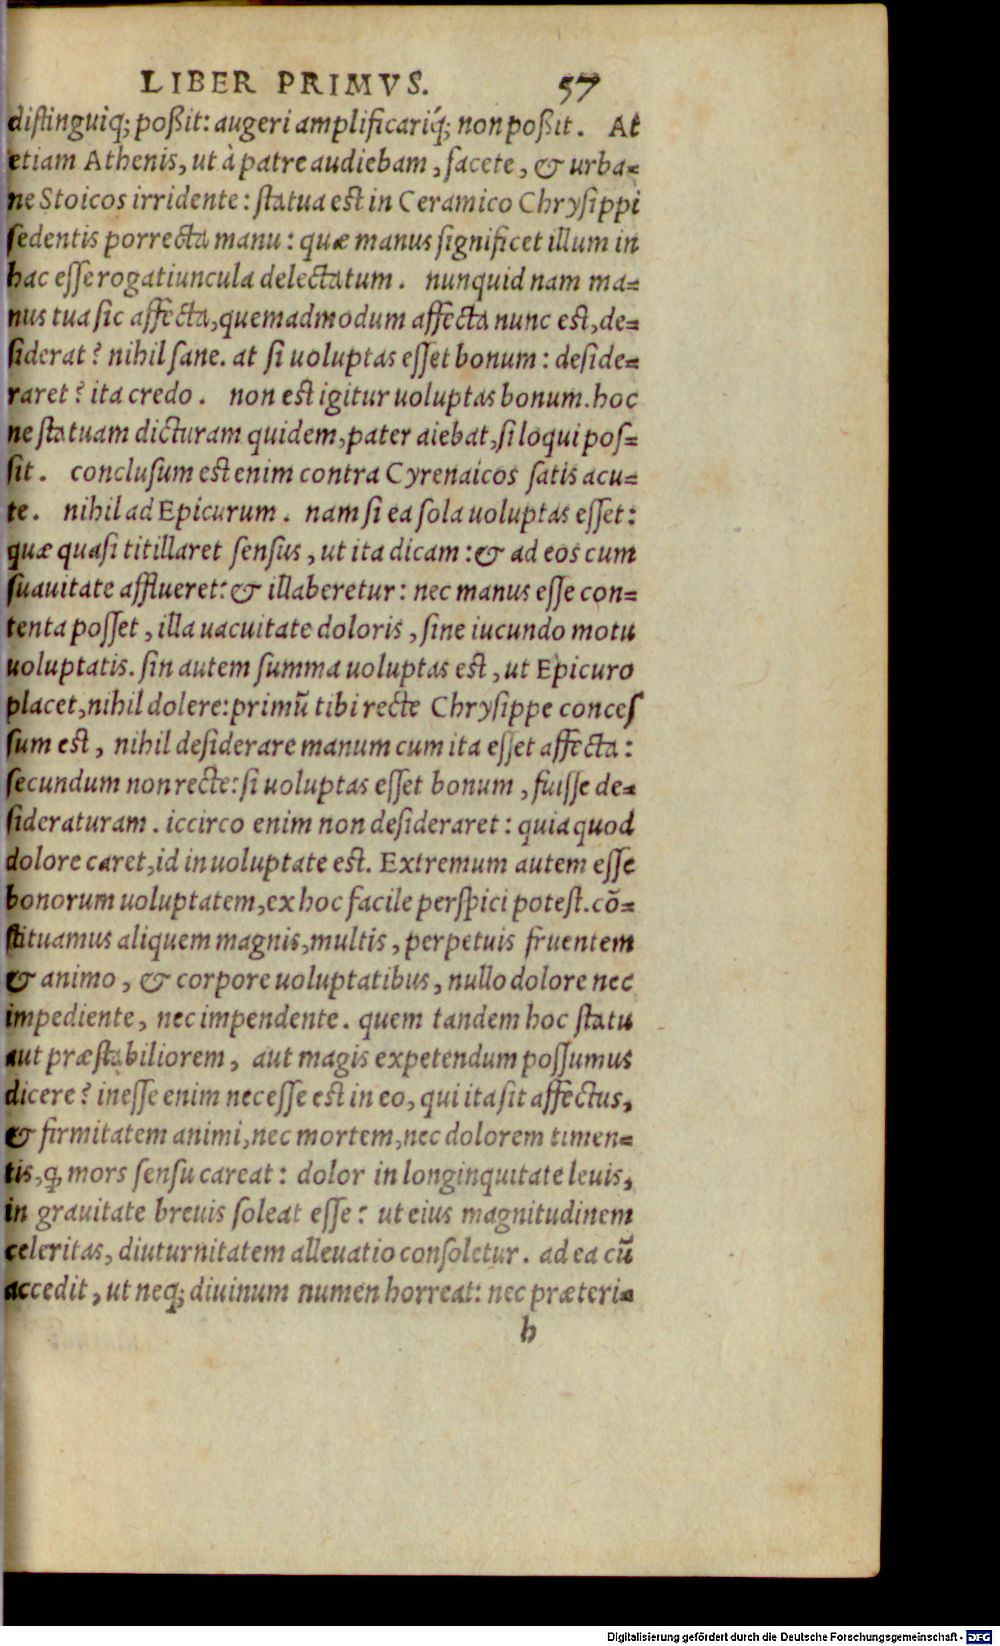 LIBER PRIMVS. 57
distinguiq́; poßit: augeri amplificariq́; non poßit. At
etiam Athenis, ut à patre audiebam, facete, & urba=
ne Stoicos irridente: statua est in Ceramico Chrysippi
sedentis porrecta manu: quæ manus significet illum in
hac esse rogatiuncula delectatum. nunquid nam ma=
nus tua sic affecta, quemadmodum affecta nunc est, de=
siderat? nihil sane. at si uoluptas esset bonum: deside=
raret? ita credo. non est igitur uoluptas bonum. hoc
ne statuam dicturam quidem, pater aiebat, si loqui pos=
sit. conclusum est enim contra Cyrenaicos satis acu=
te. nihil ad Epicurum. nam si ea sola uoluptas esset:
quæ quasi titillaret sensus, ut ita dicam: & ad eos cum
suauitate afflueret: & illaberetur: nec manus esse con=
tenta posset, illa uacuitate doloris, sine iucundo motu
uoluptatis. sin autem summa uoluptas est, ut Epicuro
placet, nihil dolere: primũ tibi recte Chrysippe conces
sum est, nihil desiderare manum cum ita esset affecta:
secundum non recte: si uoluptas esset bonum, fuisse de=
sideraturam. iccirco enim non desideraret: quia quod
dolore caret, id in uoluptate est. Extremum autem esse
bonorum uoluptatem, ex hoc facile perspici potest. cõ=
stituamus aliquem magnis, multis, perpetuis fruentem
& animo, & corpore uoluptatibus, nullo dolore nec
impediente, nec impendente. quem tandem hoc statu
aut præstabiliorem, aut magis expetendum possumus
dicere? inesse enim necesse est in eo, qui ita sit affectus,
& firmitatem animi, nec mortem, nec dolorem timen=
tis, q̃ mors sensu careat: dolor in longinquitate leuis,
in grauitate breuis soleat esse: ut eius magnitudinem
celeritas, diuturnitatem alleuatio consoletur. ad ea cũ
accedit, ut neq; diuinum numen horreat: nec præteri=
h
Digitalisierung gefördert durch die Deutsche Forschungsgemeinschaft - DFG